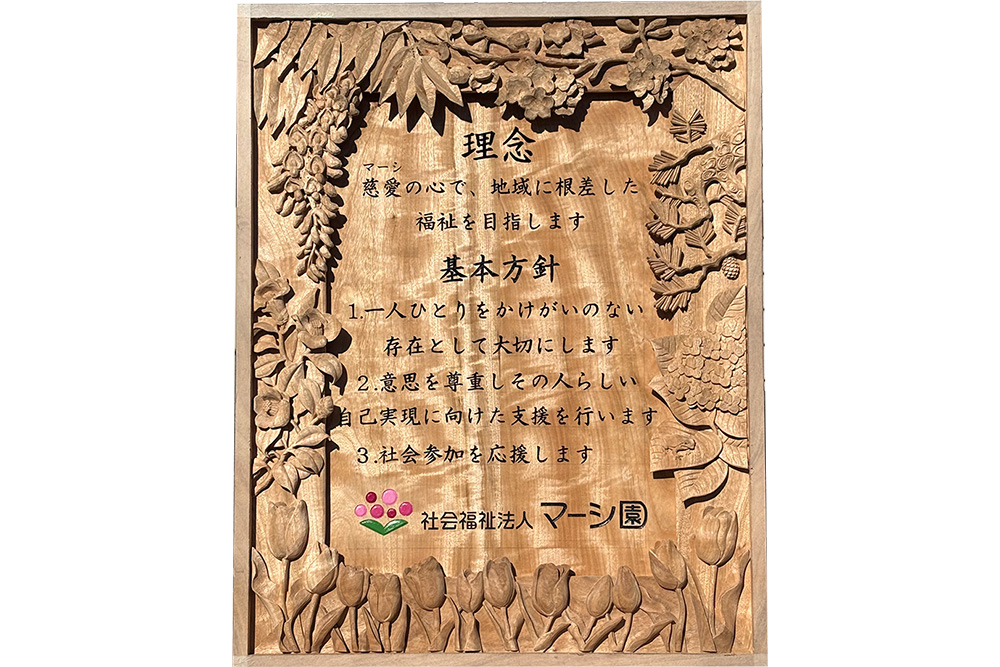 理念
マーシ
慈愛の心で、地域に根差した
福祉を目指します
基本方針
1.一人ひとりをかけがいのない
存在として大切にします
2.意思を尊重しその人らしい
自己実現に向けた支援を行います
3.社会参加を応援します
社会福祉法人 マーシ園